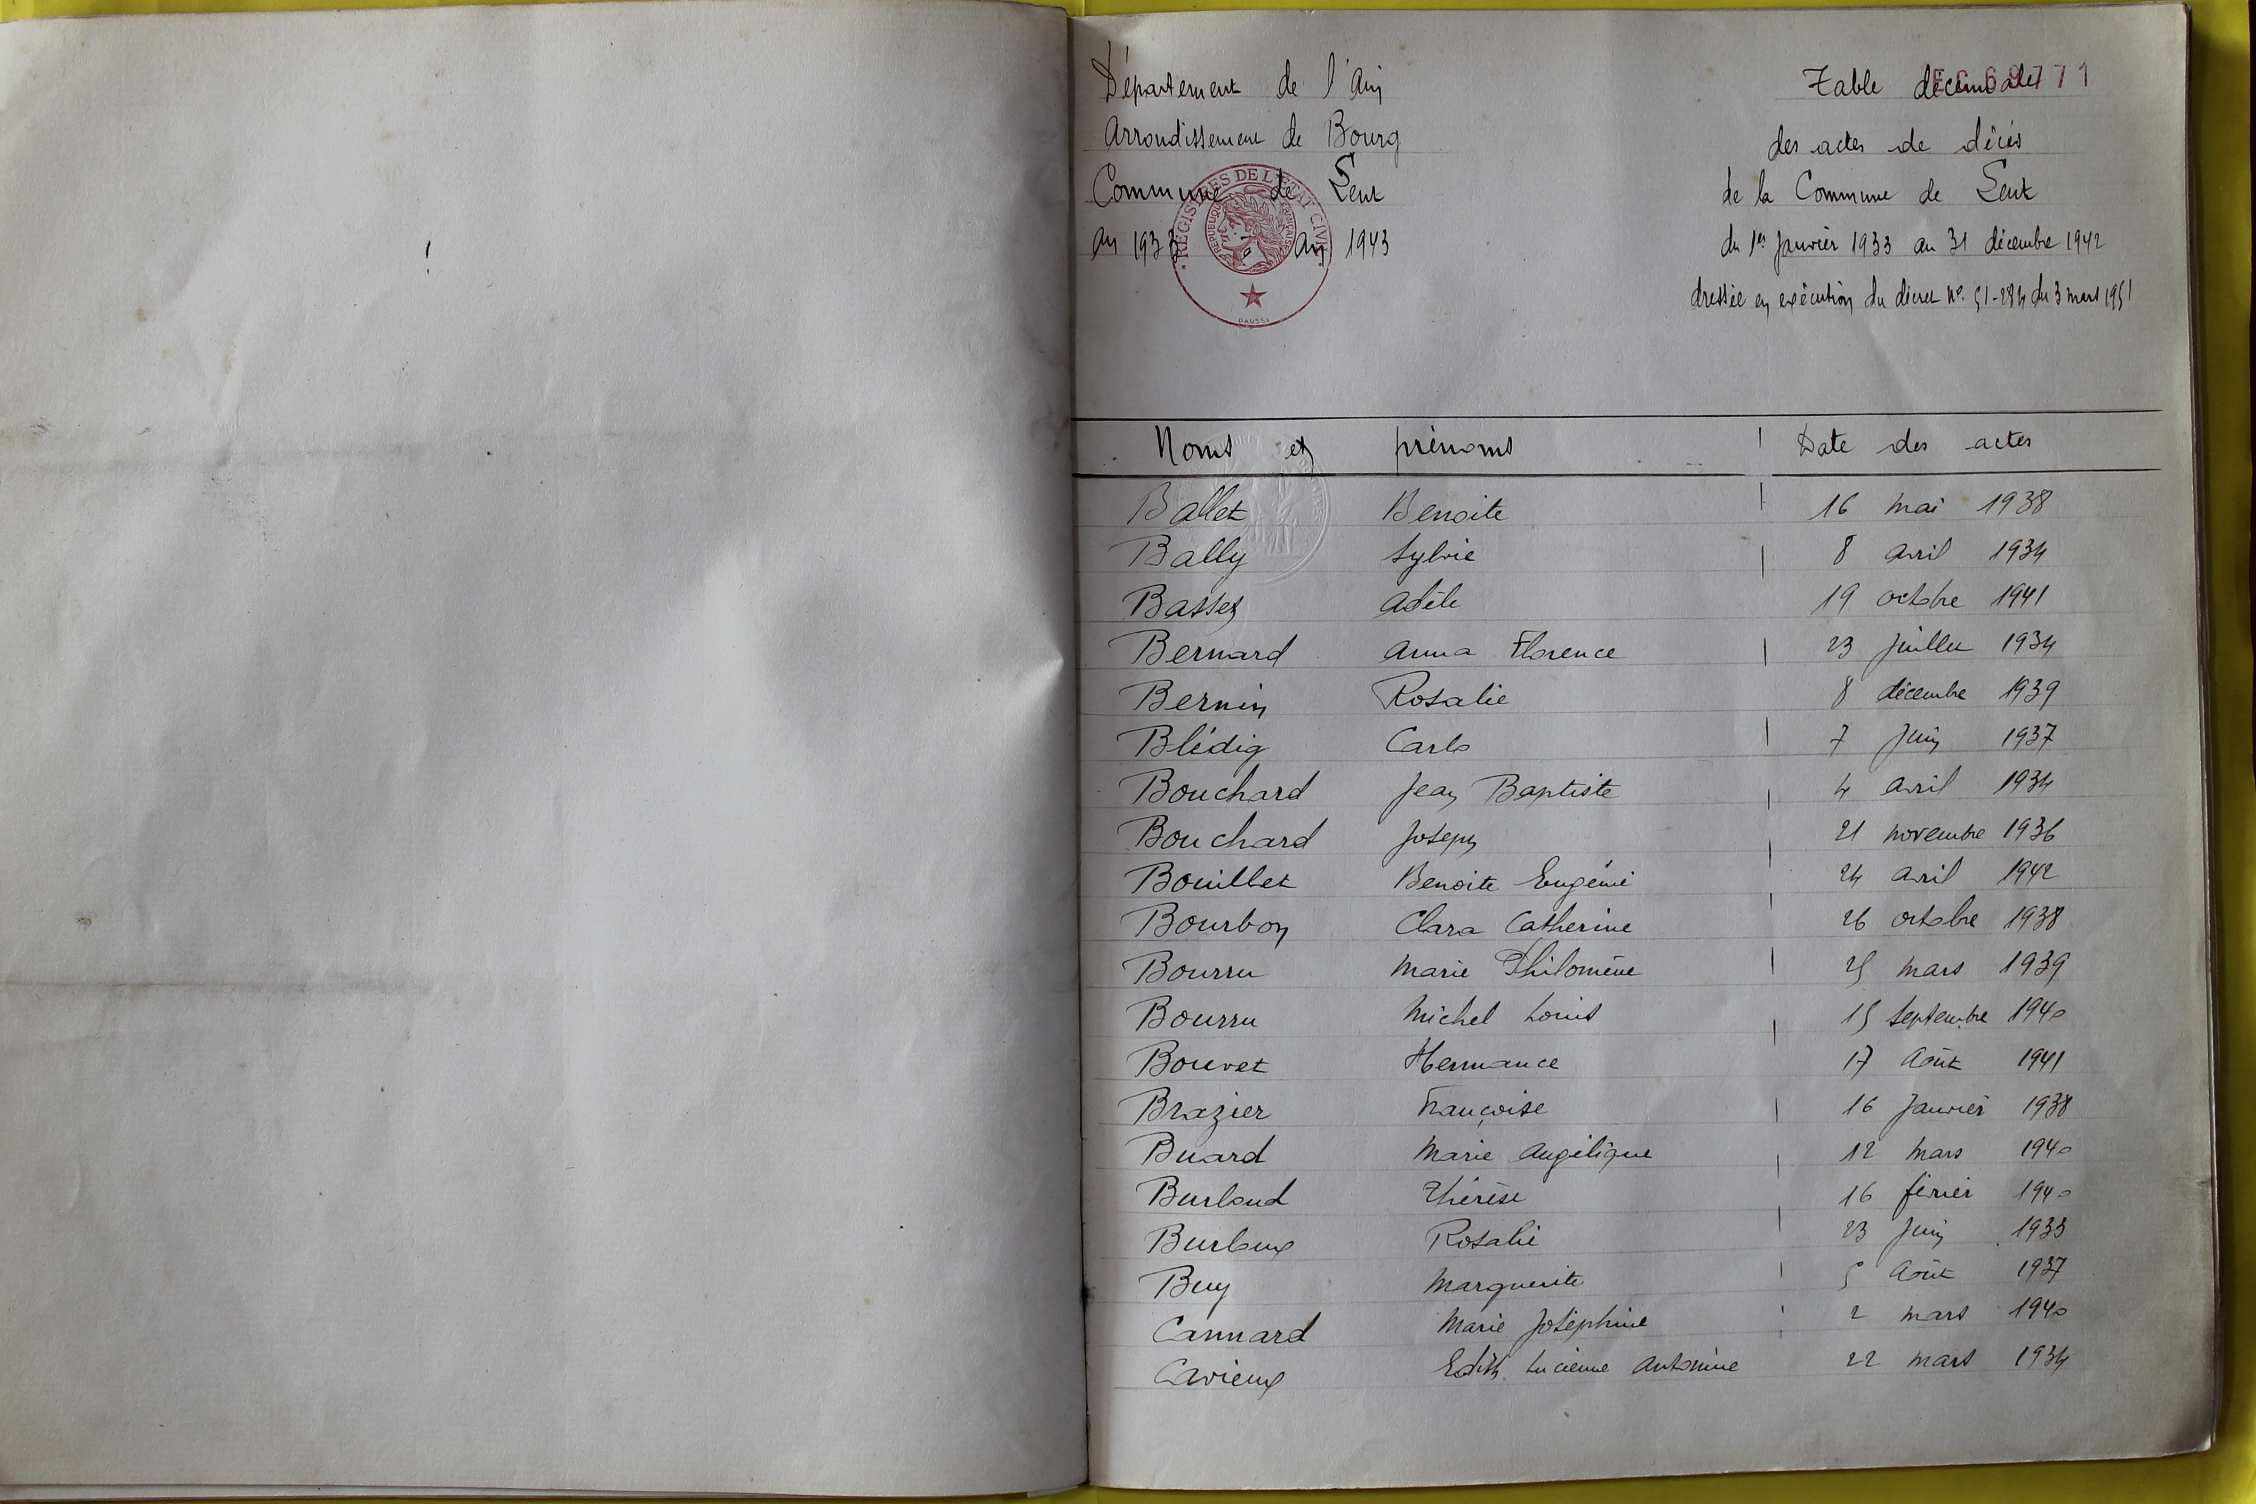 Département de l'Ain
Arrondissement de Bourg
Commune de Lent
An 1933 An 1943
REGISTRES DE L'ETAT CIVIL
REPUBLIQUE FRANÇAISE
69771
Table décennale
des actes de décès
de la Commune de Lent
du 1er Janvier 1933 au 31 décembre 1942
dressée en exécution du décret No. 51-284 du 3 mars 1951
Noms et prénoms Date des actes
Ballet Benoite 16 mai 1938
Bally Sylvie 8 avril 1934
Basset Adèle 19 octobre 1941
Bernard Anna Florence 23 Juillet 1934
Bernin Rosalie 8 décembre 1939
Blédig Carlo 7 Juin 1937
Bouchard Jean Baptiste 4 avril 1934
Bouchard Joseph 21 novembre 1936
Bouillet Benoite Eugénie 24 avril 1942
Bourbon Clara Catherine 26 octobre 1938
Bourru Marie Philomène 25 mars 1939
Bourru Michel Louis 15 septembre 1940
Bouvet Hermance 17 Août 1941
Brazier Françoise 16 Janvier 1938
Buard Marie Angélique 12 mars 1940
Burloud Thérèse 16 février 1940
Burloux Rosalie 23 Juin 1933
Buy Marguerite 5 Août 1937
Cannard Marie Joséphine 2 mars 1940
Cavieux Edith Lucienne Antonine 22 mars 1934